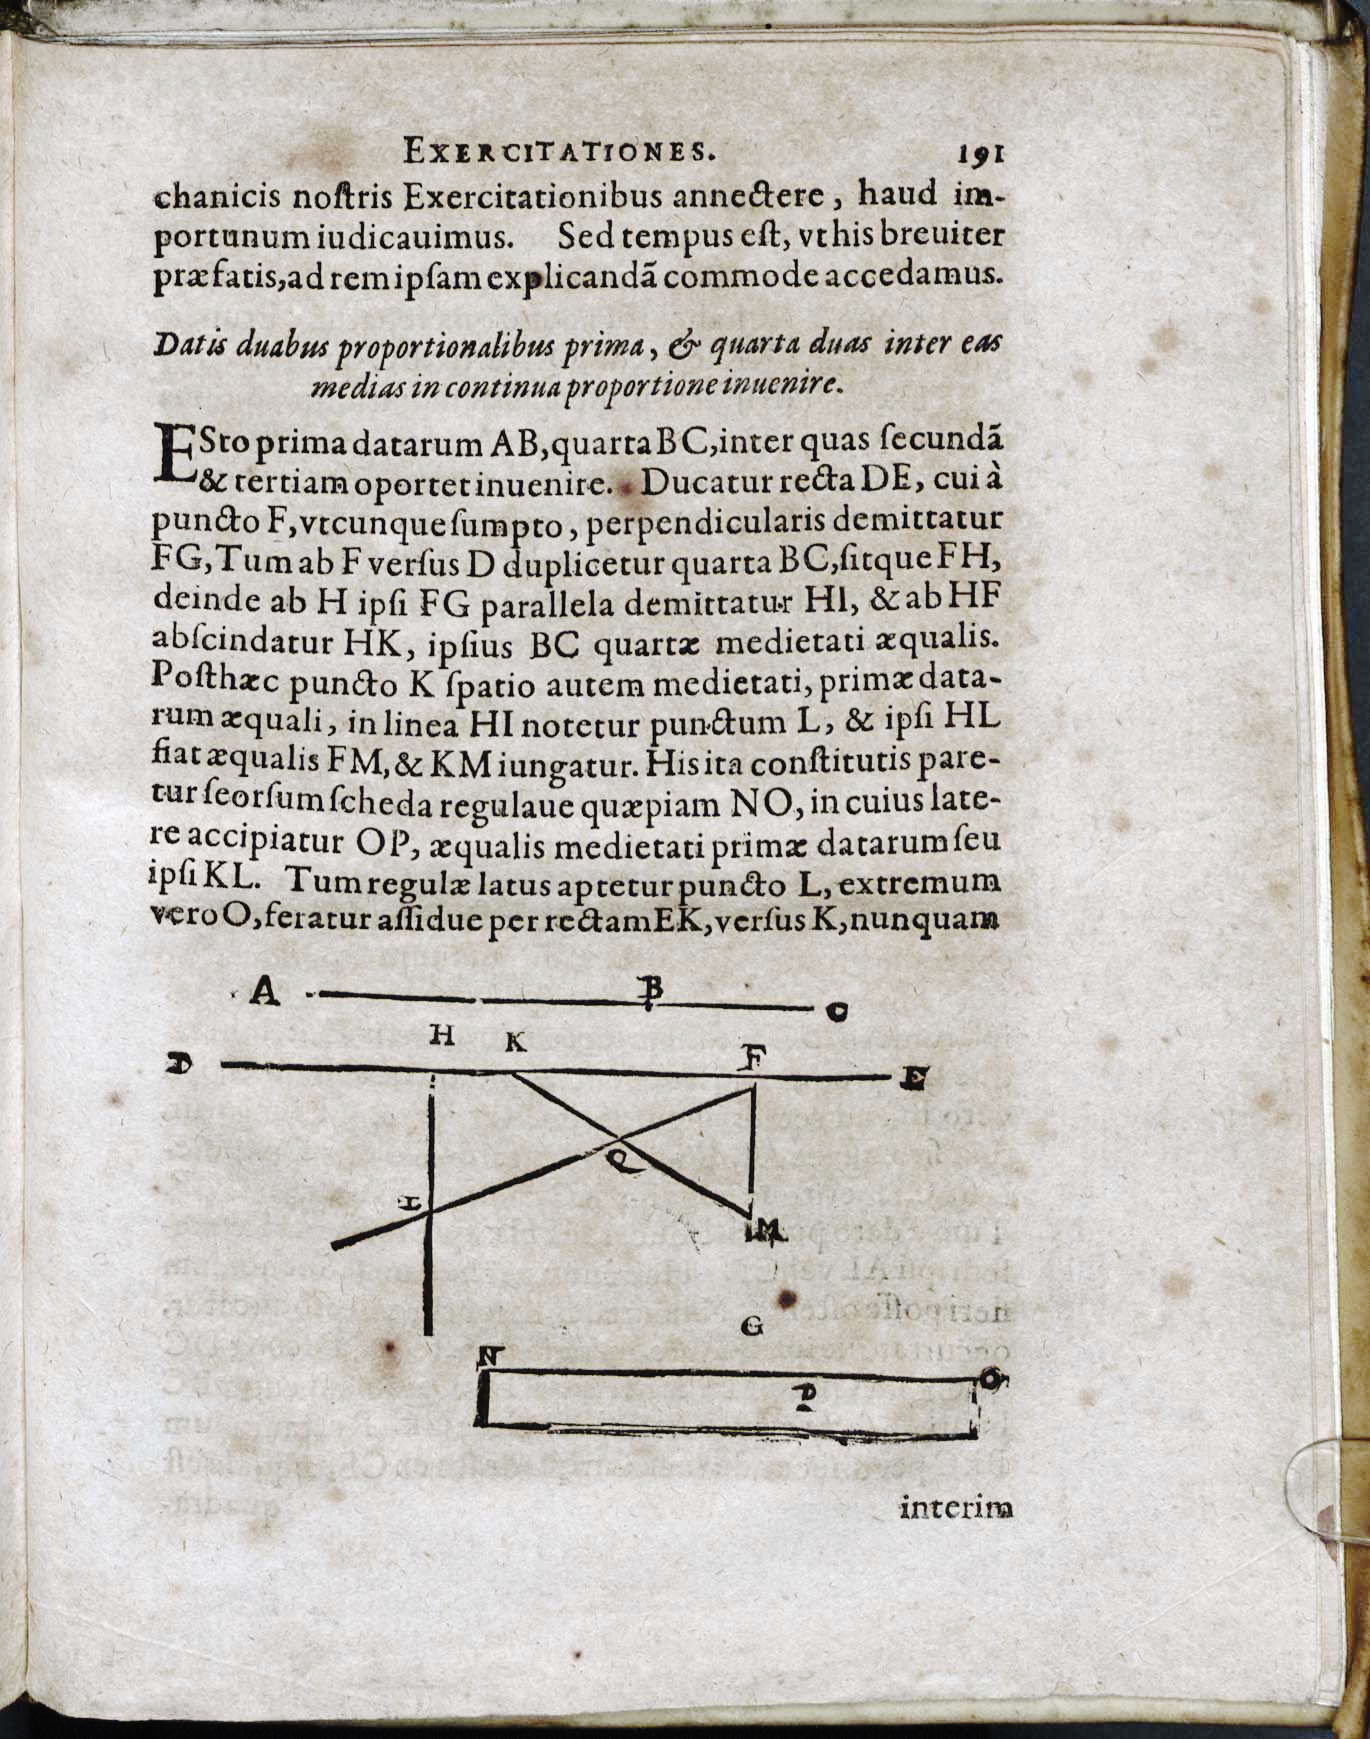 EXERCITATIONES. 191
chanicis noſtris Exercitationibus annectere, haud im-
portunum iudicauimus. Sed tempus eſt, vt his breuiter
præfatis, ad rem ipſam explicandã commode accedamus.
Datis duabus proportionalibus prima, & quarta duas inter eas
medias in continua proportione inuenire.
ESto prima datarum AB, quarta BC, inter quas ſecundã
& tertiam oportet inuenire. Ducatur recta DE, cui à
puncto F, vtcunque ſumpto, perpendicularis demittatur
FG, Tum ab F verſus D duplicetur quarta BC, ſitque FH,
deinde ab H ipſi FG parallela demittatur HI, & ab HF
abſcindatur HK, ipſius BC quartæ medietati æqualis.
Poſthæc puncto K ſpatio autem medietati, primæ data-
rum æquali, in linea HI notetur punctum L, & ipſi HL
fiat æqualis FM, & KM iungatur. His ita conſtitutis pare-
tur ſeorſum ſcheda regulaue quæpiam NO, in cuius late-
re accipiatur OP, æqualis medietati primæ datarum ſeu
ipſi KL. Tum regulæ latus aptetur puncto L, extremum
vero O, feratur aſſidue per rectam EK, verſus K, nunquam
A B C
H K F
D E
P
I
M
G
N O
P
interim